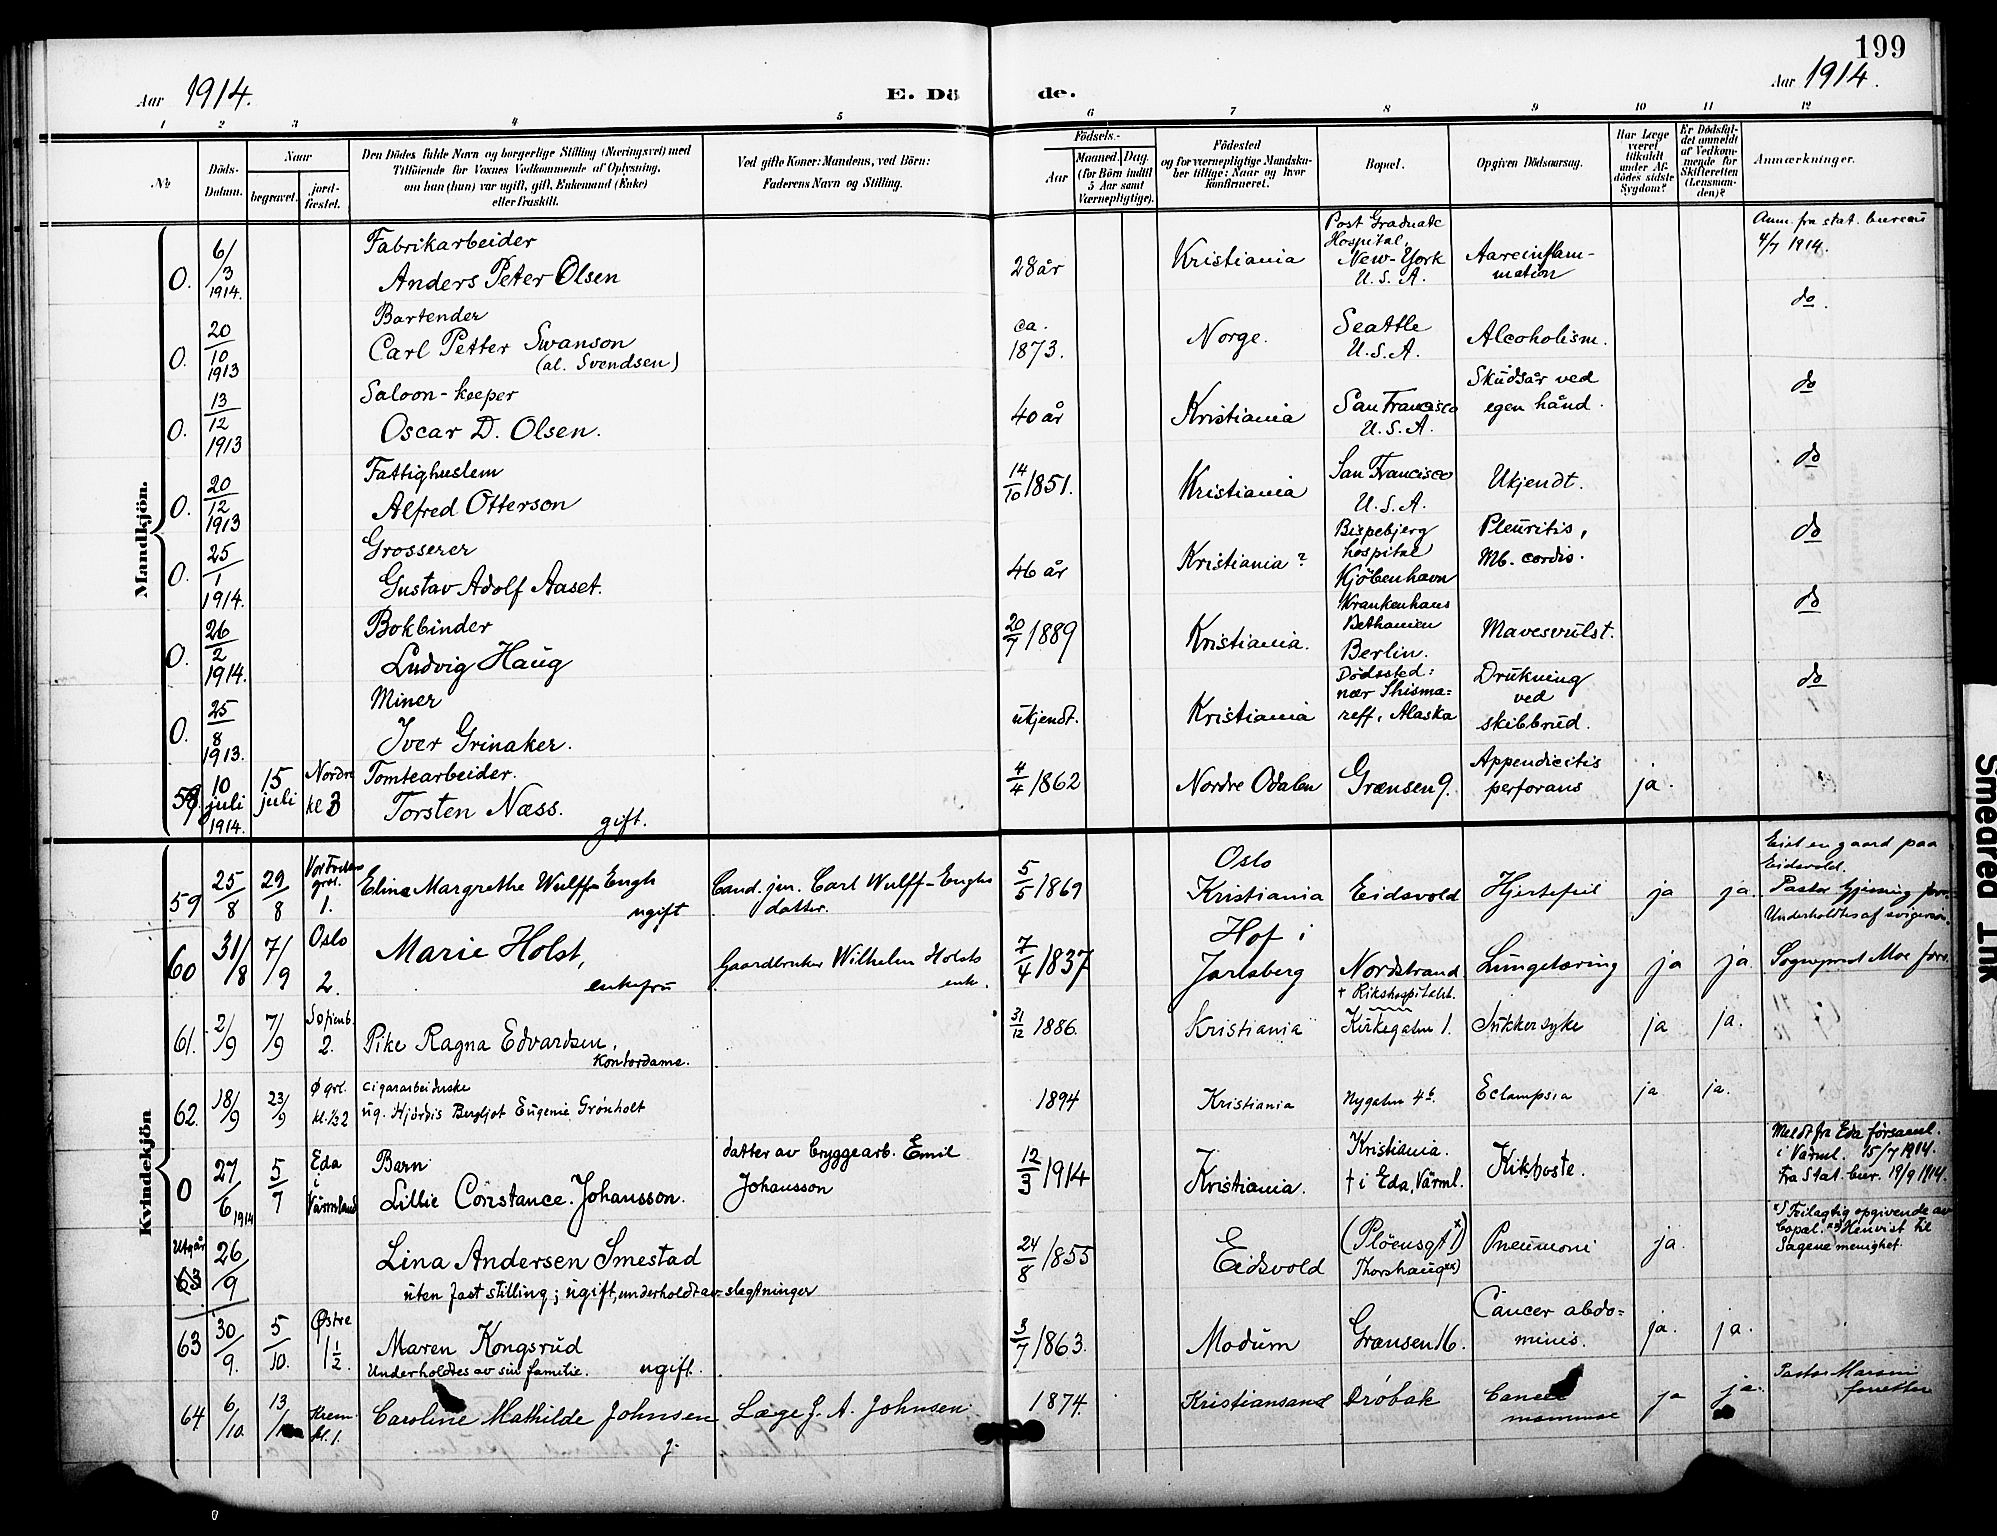 199
Aar 1914.
E. Dö de.
Aar 1914.
1 2 3 4 5 6 7 8 9 10 11 12
№
Döds-
Datum.
Naar
begravet.
jord-
fæstet.
Den Dödes fulde Navn og borgerlige Stilling (Næringsvei) med
Tilföiende for Voxnes Vedkommende af Oplysning,
om han (hun) var ugift, gift, Enkemand (Enke)
eller fraskilt.
Ved gifte Koner: Mandens, ved Börn:
Faderens Navn og Stilling.
Födsels.-
Aar
Maaned. Dag.
(for Börn indtil
5 Aar samt
Værnepligtige).
Födested
og for værnepligtige Mandska-
ber tillige: Naar og hvor
konfirmeret.
Bopæl.
Opgiven Dödsaarsag.
Har Læge
været
tilkaldt
under Af-
dödes sidste
Sygdom?
Er Dödsfal-
det anmeldt
af Vedkom-
mende for
Skifteretten
(Lensman-
den)?
Anmærkninger.
Mandkjön.
O. 6/3 1914. Fabrikarbeider
Anders Peter Olsen
28 år
Kristiania
Post Graduate
Hospital,
New-York
U.S.A.
Aareinflam-
mation
Anm. fra stat. bureau
4/7 1914.
O. 20/10 1913 Bartender
Carl Petter Swanson
(al. Svendsen)
ca.
1873.
Norge.
Seattle
U.S.A.
Alcoholism.
do.
O. 13/12 1913 Saloon-keeper
Oscar D. Olsen.
40 år
Kristiania
San Francisco
U.S.A.
Skudsår ved
egen hånd.
do
O. 20/12 1913 Fattighuslem
Alfred Otterson
14/10 1851.
Kristiania
San Francisco
U.S.A.
Ukjendt.
do
O. 25/1 1914. Grosserer
Gustav Adolf Aaset.
46 år
Kristiania?
Bispebjerg
hospital
Kjöbenhavn
Pleuritis,
Mb. cordis.
do
O. 26/2 1914. Bokbinder
Ludvig Haug
20/7 1889
Kristiania.
Krankenhaus
Bethanien
Berlin.
Mavesvulst.
do
O. 25/8 1913. Miner
Iver Grinaker.
ukjendt.
Kristiania
Dödssted:
nær Shisma=
reff, Alaska
Drukning
ved
skibbrud.
do
59. 10 juli 1914. 15 juli Nordre kl 3 Tomtearbeider.
Torsten Næss. gift.
4/4 1862
Nordre Odalen
Grænsen 9.
Appendicitis
perforans
ja.
Kvindekjön
59 25/8 29/8 Vor Frelsers
grl.
1.
Eline Margrethe Wulff-Engh
ugift
Cand. jur. Carl Wulff-Enghs
datter.
5/5 1869
Oslo
Kristiania
Eidsvold
Hjertefeil
ja ja
Eiet en gaard paa
Eidsvold.
Pastor
Underholdtes af
60 31/8 7/9 Oslo
2.
Marie Holst,
enkefru
Gaardbruker Wilhelm Holsts
enke.
7/4 1837
Hof i
Jarlsberg
Nordstrand
† Rikshospitalet.
Lungetæring
ja ja
Sogneprest Moe forr.
61. 2/9 7/9 Sofienb.
2.
Pike Ragna Edvardsen,
Kontordame.
31/12 1886.
Kristiania
Kirkegaten 1.
Sukkersyke
ja ja.
62. 18/9 23/9 Ø grl.
kl. 1/2 2
cigararbeiderske
ug. Hjördis Bergljot Eugenie Grönholt
1894
Kristiania
Nygaten 4b.
Eclampsia
ja ja.
O 27/6 1914 5/7 Eda
i
Värmland
Barn
Lillie Constance Johansson.
datter av bryggearb. Emil
Johansson
12/3 1914
Kristiania.
Kristiania.
† i Eda, Värml.
Kikhoste.
Meldt fra Eda församl.
i Värml. 15/7 1914.
Fra Stat. bur. 19/9 1914.
Utgår
63 26/9 Lina Andersen Smestad
uten fast stilling; ugift, underholdt av slegtninger
24/8 1855
Eidsvold
(Plöensgt 1) x
Thorshaug xx)
Pneumoni
ja.
x) Feilagtig opgivende av
bopæl. xx) Henvist til
Sagene menighet.
63 30/9. 5/10. Østre
1 1/2.
Maren Kongsrud
Underholdtes av sin familie. ugift.
3/7 1863.
Modum
Grænsen 16.
Cancer abdo=
minis.
ja. ja.
64 6/10 13/10 Krem.
kl. 1.
Caroline Mathilde Johnsen
g.
Læge J. A. Johnsen
1874.
Kristiansand
Dröbak
Cancer
mammae
ja ja.
Pastor
forretter
Smeared Ink